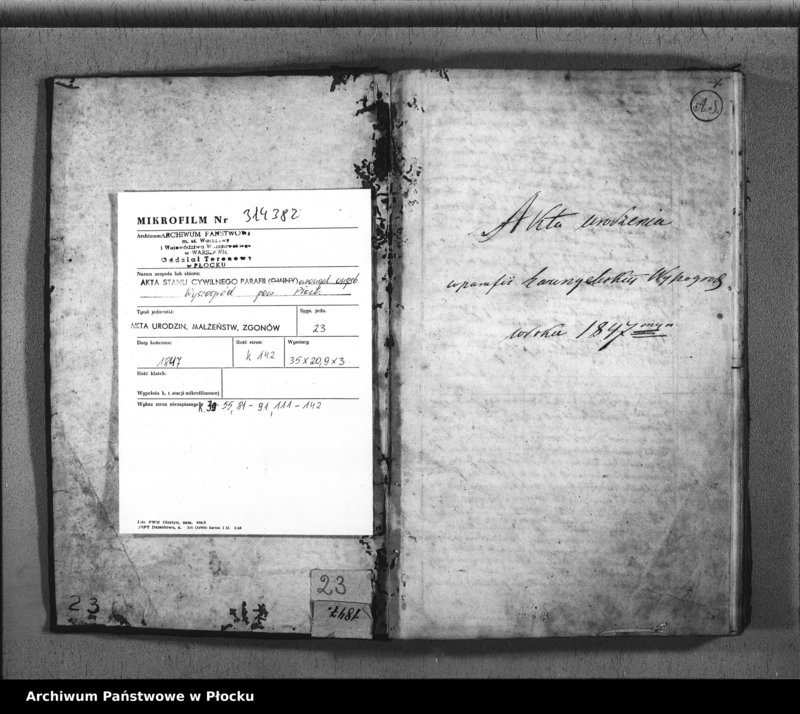 MIKROFILM Nr 314382
Archiwum ARCHIWUM PAŃSTWOWE
m. st. Warszawy
i Województwa Warszawskiego
w WARSZAWIE
Oddział Terenowy
w PŁOCKU
Nazwa zespołu lub zbioru:
AKTA STANU CYWILNEGO PARAFII (GMINY) ewangel. augsb.
Wyszogród pow. Płock
Tytuł jednostki:
AKTA URODZIN, MAŁŻEŃSTW, ZGONÓW
Sygn. jedn.
23
Daty końcowe:
1847
Ilość stron:
k 142
Wymiary
35 x 20,9 x 3
Ilość klatek:
Wypełnia k. t. stacji mikrofilmowej
Wykaz stron niezapisanych:
k. 39 - 55, 81 - 91, 111 - 142
23
23
1847.
A.S.
Akta urodzenia
w parafii Ewangelickiej Wyszogrod
w roku 1847
Archiwum Państwowe w Płocku